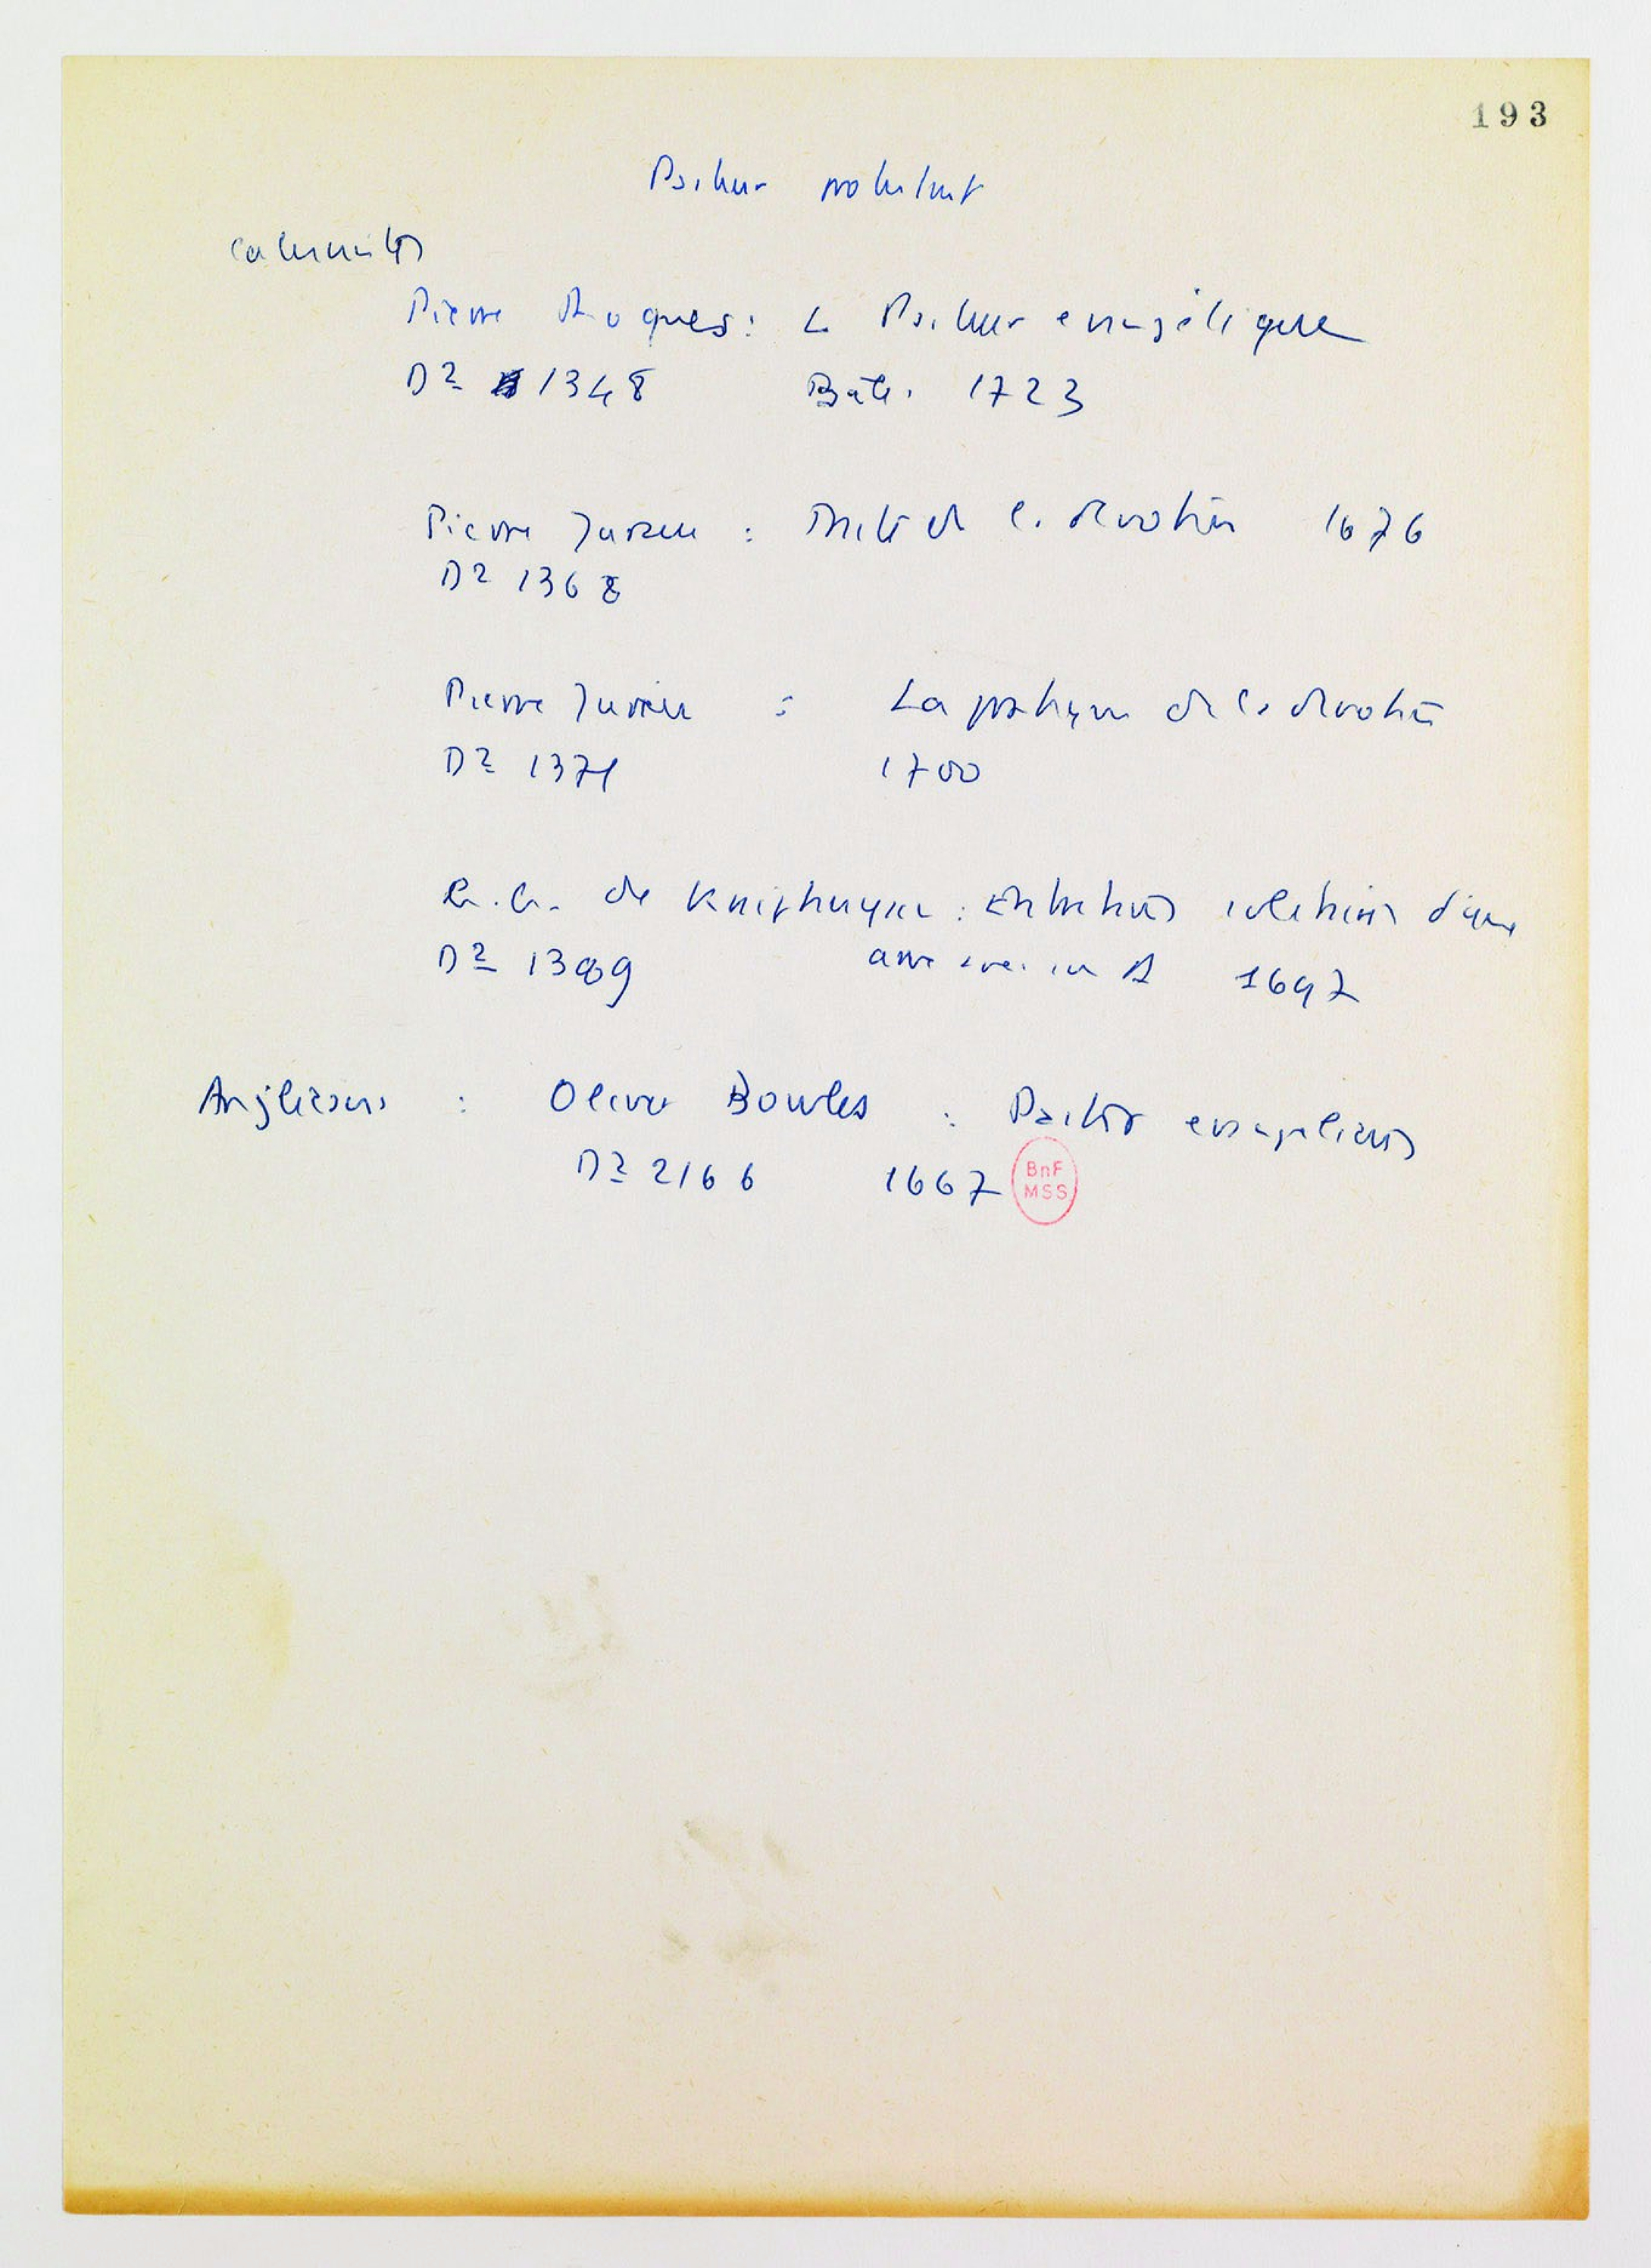 193
Pasteur protestant
Calvinistes
Pierre Roques : Le Pasteur évangélique
D2 1348 Bâle. 1723
Pierre Jurieu : Traité de la dévotion 1676
D2 1368
Pierre Jurieu : La pratique de la dévotion
D2 1371 1700
G.G. de Kniphuysen : Entretiens solitaires d'une
D2 1389 âme 1697
Anglicans : Oliver Bowles : Pastor evangelicus
D2 2166 1667
BnF
MSS